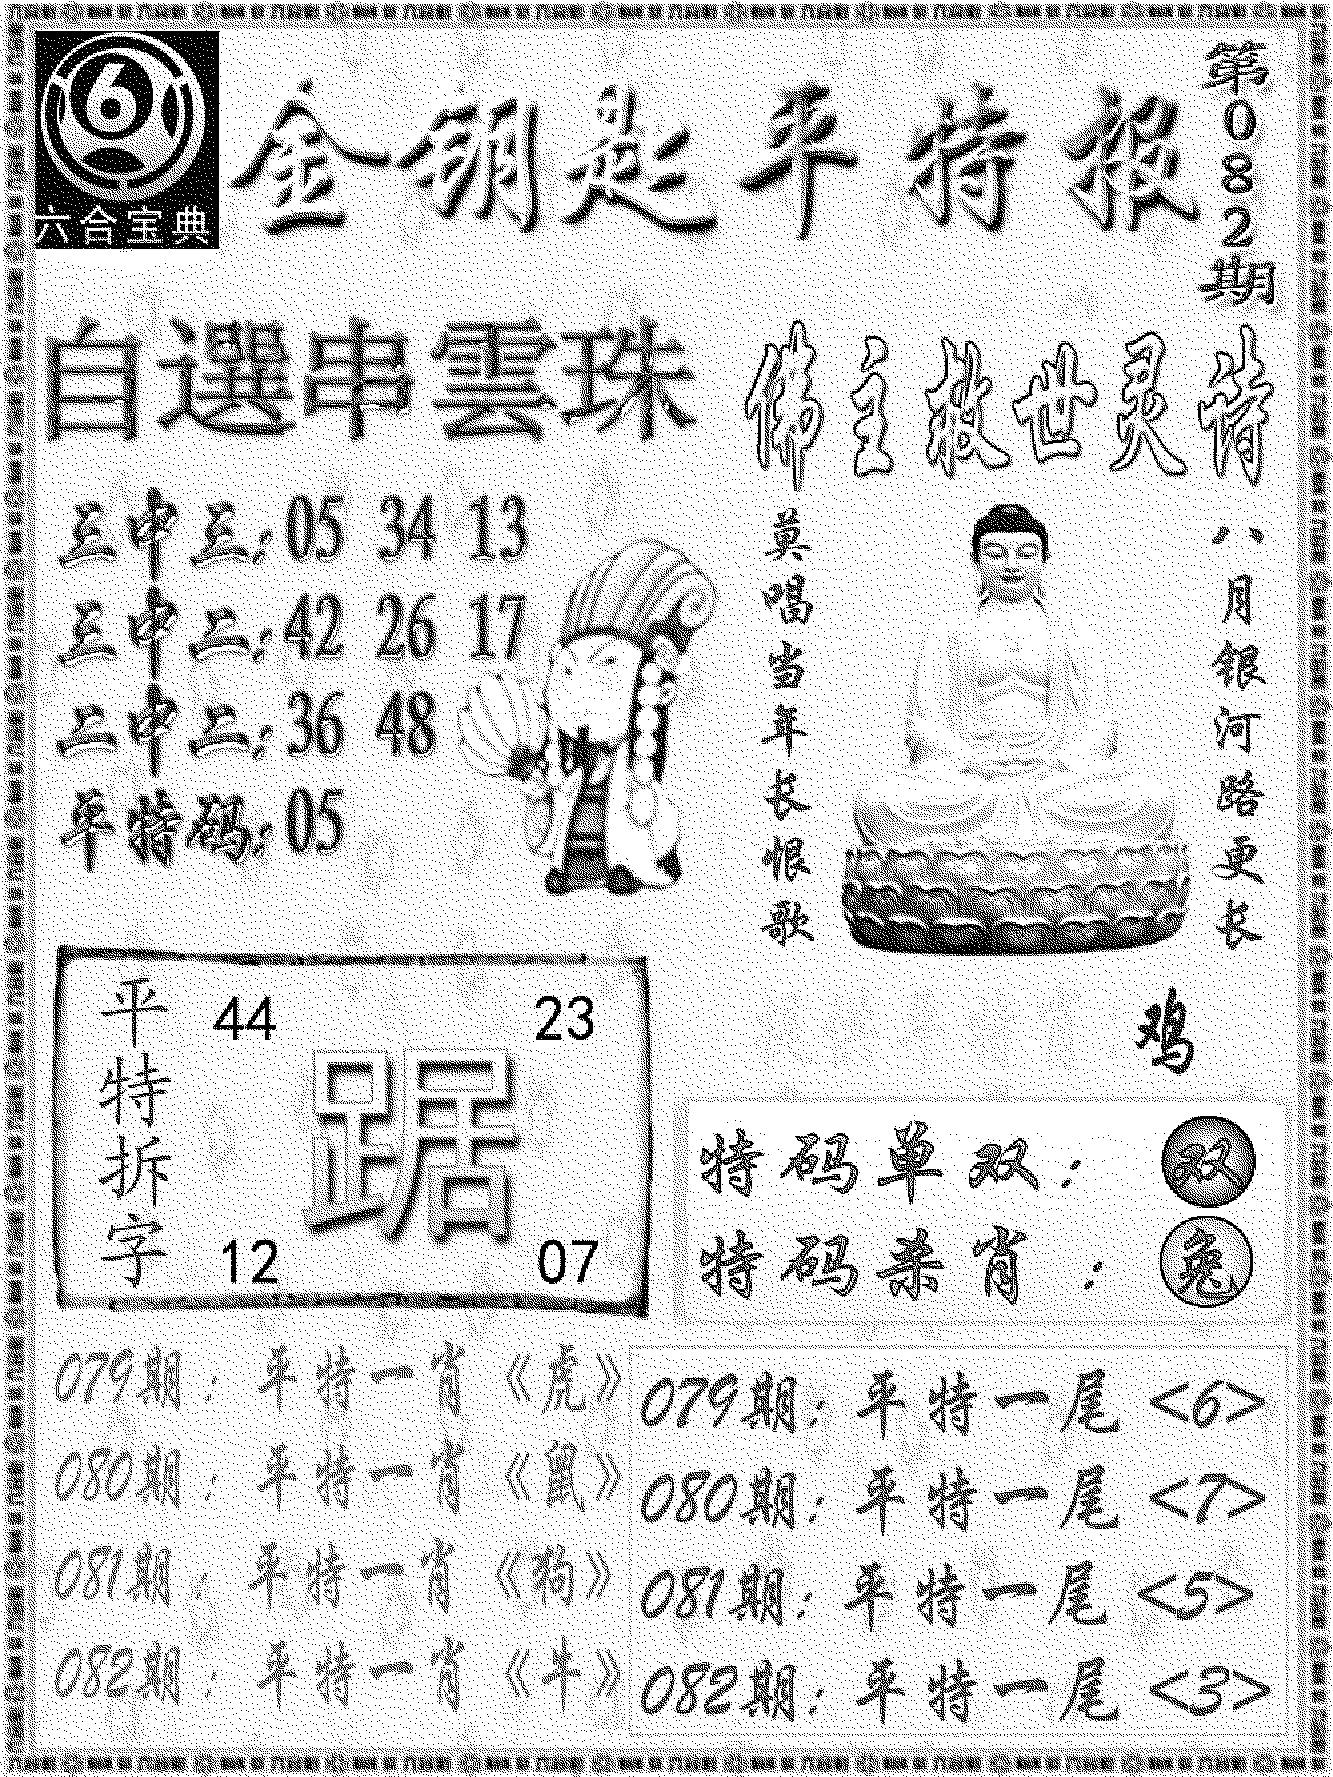 6
六合宝典
金钥匙平特报
第082期
自選串雲珠
三中三:05 34 13
三中二:42 26 17
二中二:36 48
平特码:05
佛主救世灵诗
八月银河路更长
莫唱当年长恨歌
鸡
平特拆字
44 23
踞
12 07
特码单双:双
特码杀肖:兔
079期:平特一肖《虎》
080期:平特一肖《鼠》
081期:平特一肖《狗》
082期:平特一肖《牛》
079期:平特一尾<6>
080期:平特一尾<7>
081期:平特一尾<5>
082期:平特一尾<3>